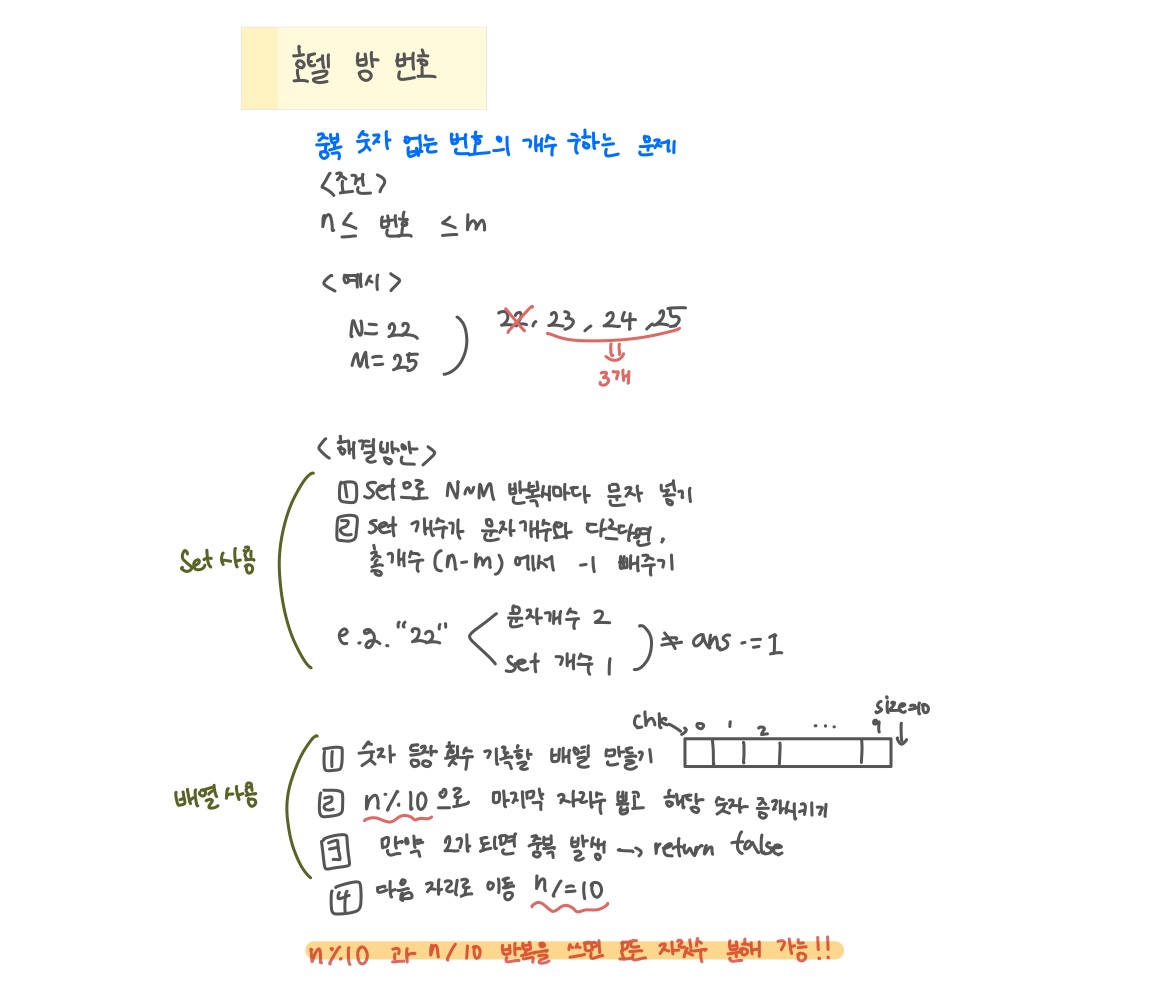 호텔 방 번호
중복 숫자 없는 번호의 개수 구하는 문제
<조건>
n ≤ 번호 ≤ m
<예시>
N= 22
M= 25
22, 23, 24, 25
3개
<해결방안>
1 set으로 N~M 반복시마다 문자 넣기
2 set 개수가 문자개수와 다르다면,
총개수 (n-m) 에서 -1 빼주기
Set 사용
e.g. "22"
문자개수 2
set 개수 1
≠ ans -= 1
size=10
chk 0 1 2 ... 9
1 숫자 등장 횟수 기록할 배열 만들기
배열 사용
2 n%10 으로 마지막 자리수 뽑고 해당 숫자 증가시키기
3 만약 2가 되면 중복 발생 → return false
4 다음 자리로 이동 n/=10
n%10 과 n/10 반복을 쓰면 모든 자릿수 분해 가능!!